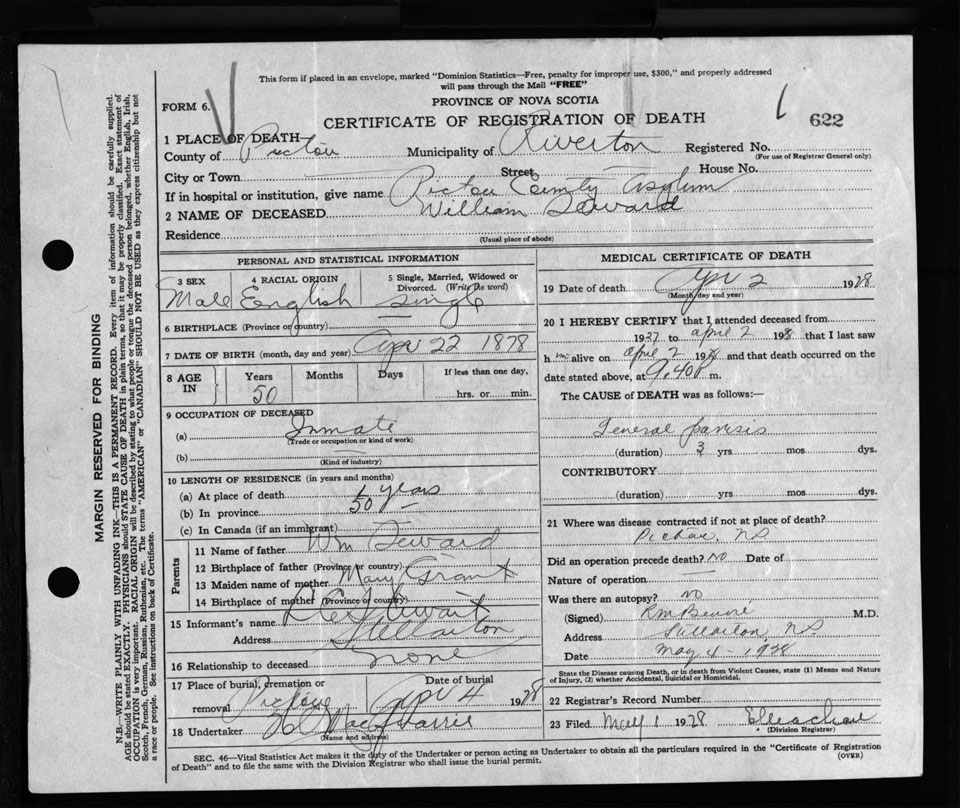 This form if placed in an envelope, marked "Dominion Statistics—Free, penalty for improper use, $300," and properly addressed
will pass through the Mail "FREE"
FORM 6.
PROVINCE OF NOVA SCOTIA
CERTIFICATE OF REGISTRATION OF DEATH
622
1 PLACE OF DEATH—
County of Pictou Municipality of Riverton Registered No.
(For use of Registrar General only)
City or Town Street House No.
If in hospital or institution, give name Pictou County Asylum
2 NAME OF DECEASED William Seward
Residence
(Usual place of abode)
PERSONAL AND STATISTICAL INFORMATION
3 SEX 4 RACIAL ORIGIN 5 Single, Married, Widowed or
Divorced. (Write the word)
Male English Single
6 BIRTHPLACE (Province or country)
7 DATE OF BIRTH (month, day and year) Apr 22 1878
8 AGE IN Years Months Days If less than one day,
50 hrs. or min.
9 OCCUPATION OF DECEASED
(a) Inmate
(Trade or occupation or kind of work)
(b)
(Kind of industry)
10 LENGTH OF RESIDENCE (in years and months)
(a) At place of death years
(b) In province 50
(c) In Canada (if an immigrant)
Parents
11 Name of father Wm Seward
12 Birthplace of father (Province or country)
13 Maiden name of mother Mary Grant
14 Birthplace of mother (Province or country)
15 Informant's name
Address Stellarton
16 Relationship to deceased none
17 Place of burial, cremation or Date of burial
removal Pictou Apr 4 1928
18 Undertaker
(Name and address)
MEDICAL CERTIFICATE OF DEATH
19 Date of death Apr 2 1928
(Month, day and year)
20 I HEREBY CERTIFY that I attended deceased from
1927 to April 2 1928 that I last saw
him alive on April 2 1928 and that death occurred on the
date stated above, at 9.40 P m.
The CAUSE of DEATH was as follows:—
General paresis
(duration) 3 yrs mos dys.
CONTRIBUTORY
(duration) yrs mos dys.
21 Where was disease contracted if not at place of death?
Pictou, NS
Did an operation precede death? NO Date of
Nature of operation
Was there an autopsy? NO
(Signed) M.D.
Address Stellarton, NS
Date May 4 - 1928
State the Disease causing Death, or in death from Violent Causes, state (1) Means and Nature
of Injury, (2) whether Accidental, Suicidal or Homicidal.
22 Registrar's Record Number
23 Filed May 1 1928
(Division Registrar)
SEC. 46—Vital Statistics Act makes it the duty of the Undertaker or person acting as Undertaker to obtain all the particulars required in the "Certificate of Registration
of Death" and to file the same with the Division Registrar who shall issue the burial permit.
(OVER)
MARGIN RESERVED FOR BINDING
N.B.—WRITE PLAINLY WITH UNFADING INK—THIS IS A PERMANENT RECORD. Every item of information should be carefully supplied.
AGE should be stated EXACTLY. PHYSICIANS should STATE CAUSE OF DEATH in plain terms, so that it may be properly classified. Exact statement of
OCCUPATION is very important. RACIAL ORIGIN will be described by stating to what people or tongue the deceased person belonged, whether English, Irish,
Scotch, French, German, Russian, Ruthenian, etc. The terms "AMERICAN" or "CANADIAN" SHOULD NOT BE USED as they express citizenship but not
a race or people. See instructions on back of Certificate.